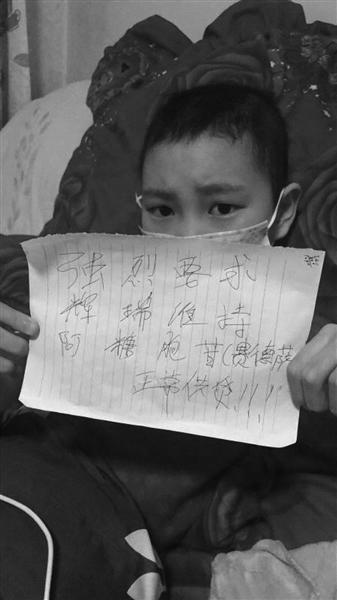 强烈要求
辉瑞维持
阿糖胞苷(赛德萨
正常供货!!!